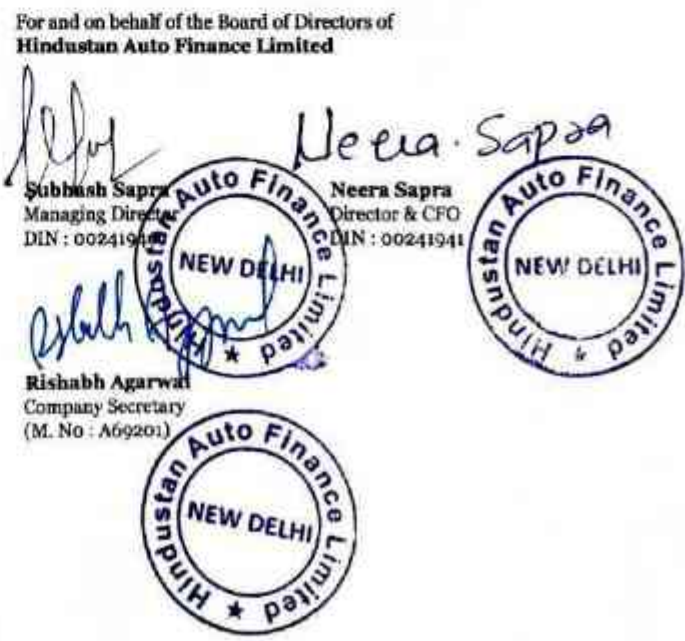 For and on behalf of the Board of Directors of
Hindustan Auto Finance Limited
Neera. Sapra
Subhash Sapra
Managing Director
DIN : 0024194
Neera Sapra
Director & CFO
DIN : 00241941
Hindustan Auto Finance Limited
NEW DELHI
Hindustan Auto Finance Limited
NEW DELHI
Rishabh Agarwal
Company Secretary
(M. No : A69201)
Hindustan Auto Finance Limited
NEW DELHI